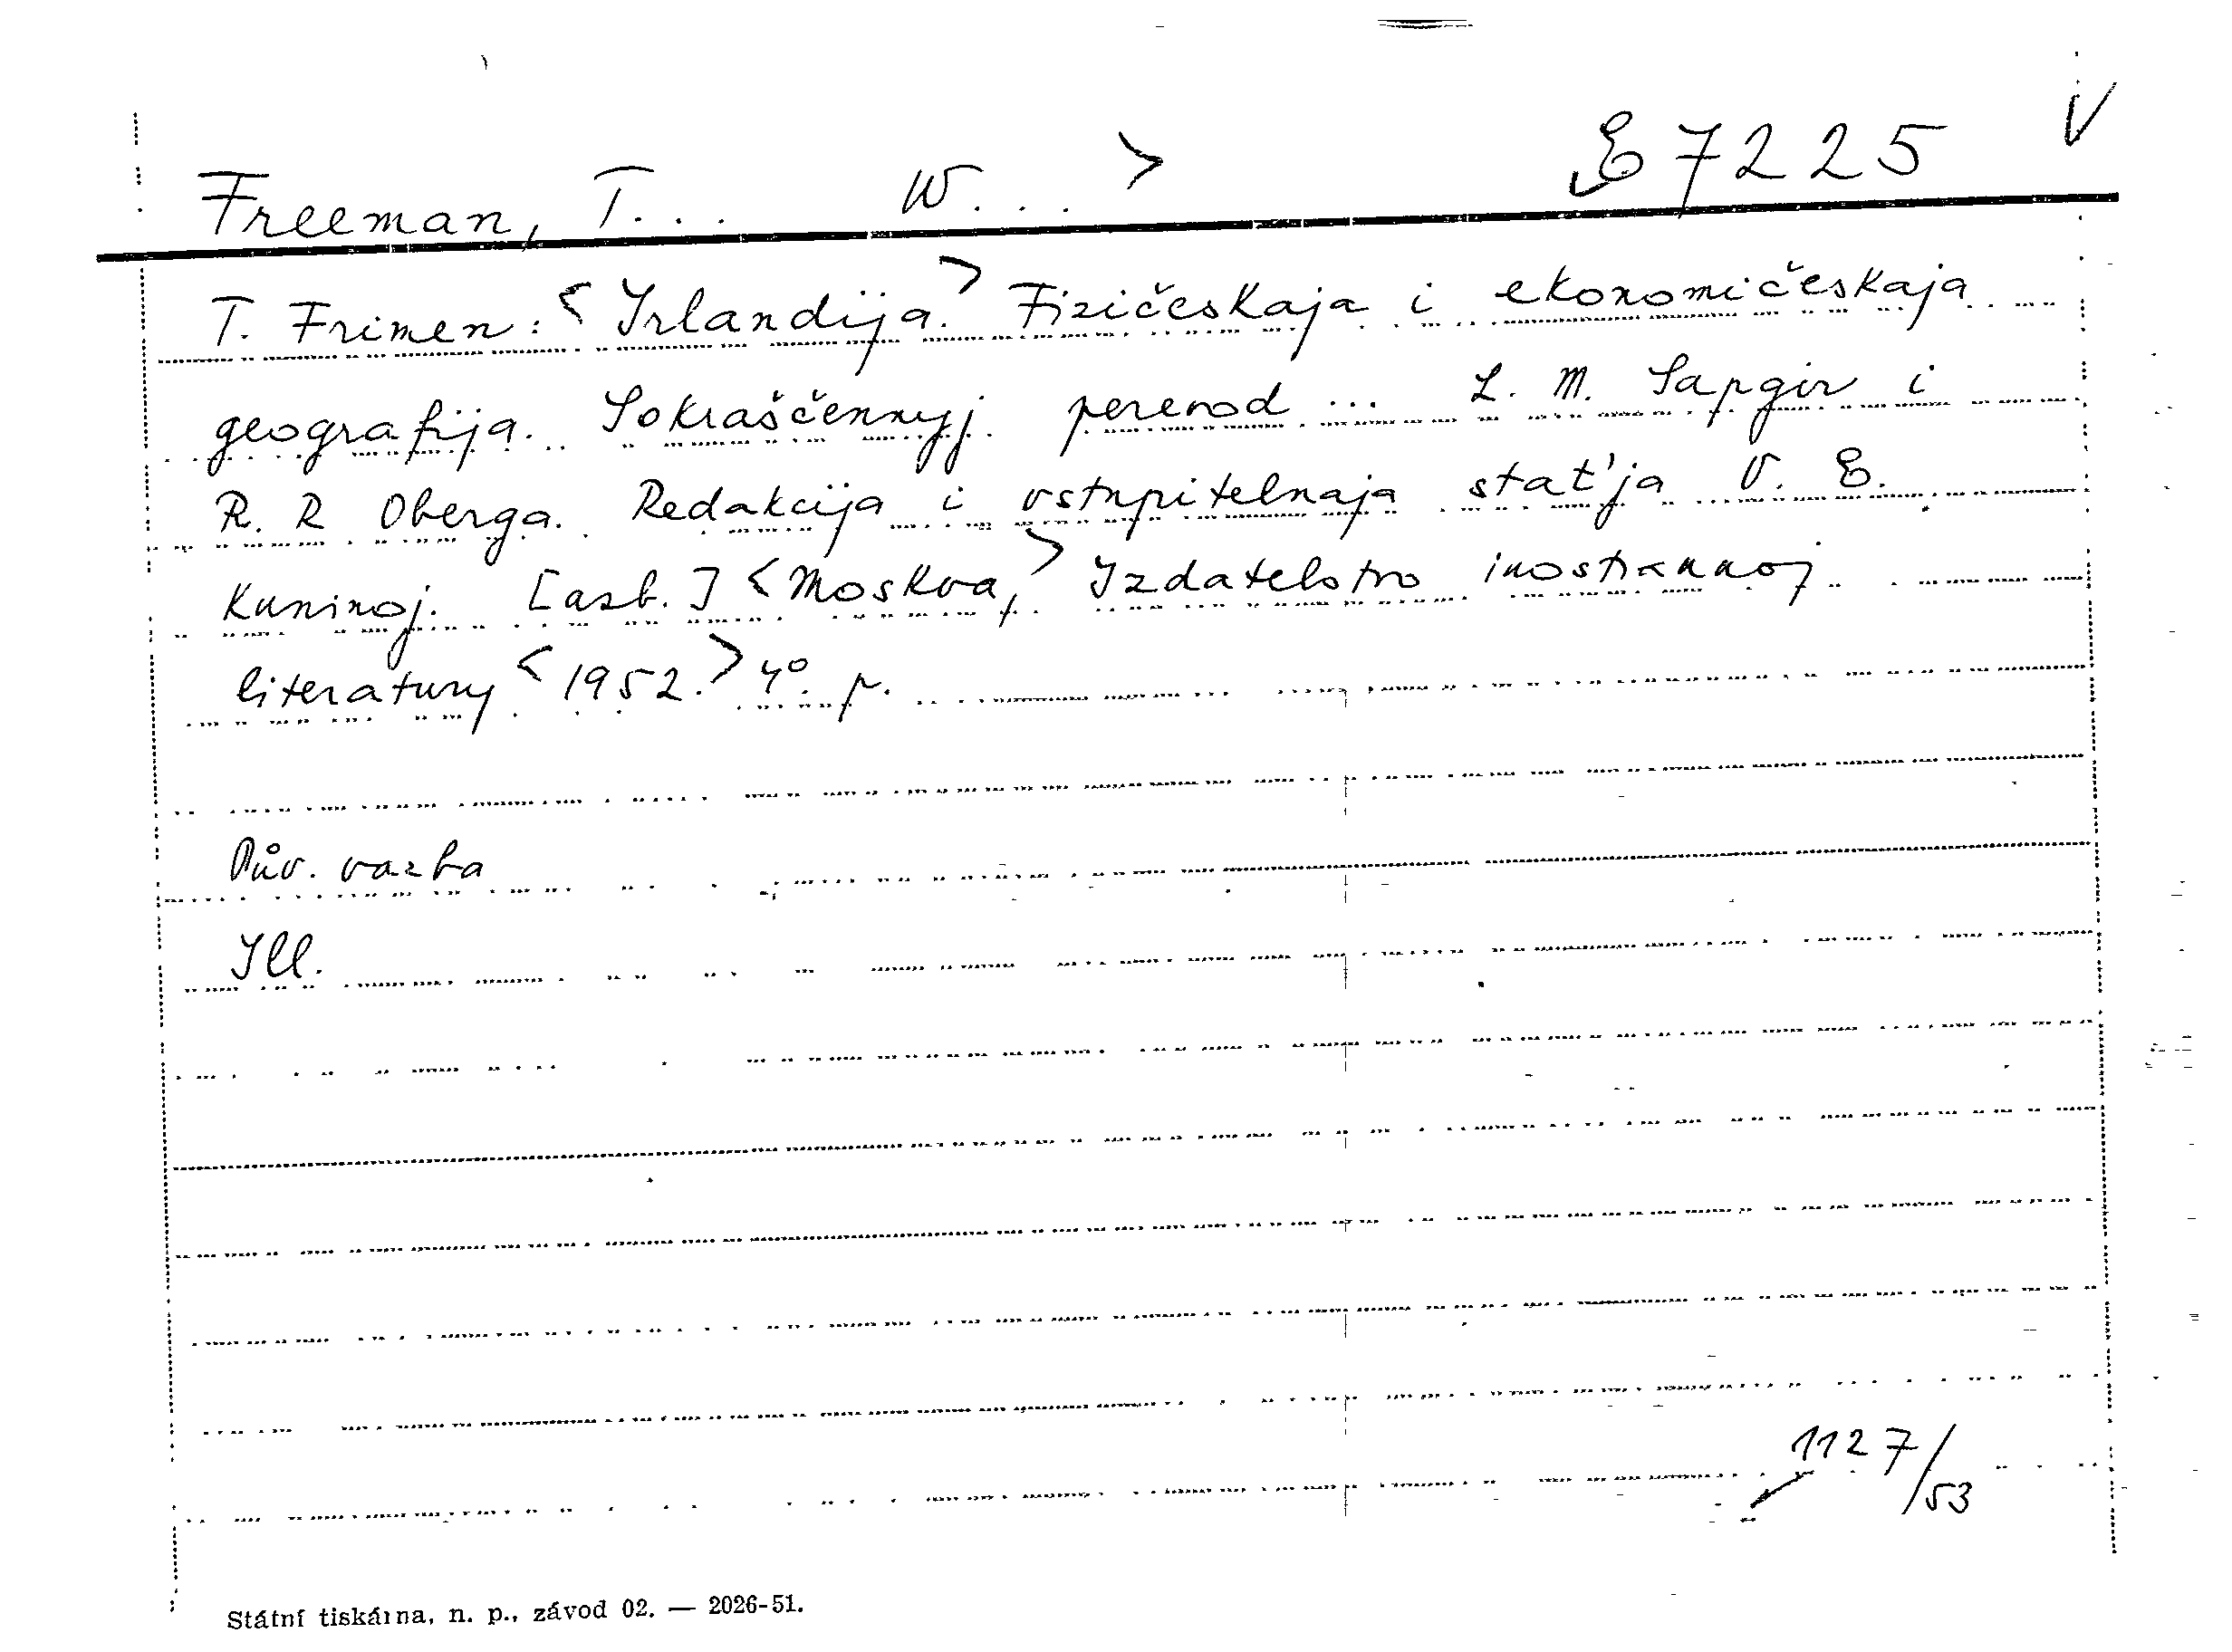 Freeman, T... W...> E 7225 V
T. Frimen: <Irlandija.> Fizičeskaja i ekonomičeskaja
geografija. Sokraščennyj perevod ... L. M. Sapgir i
R. R Oberga. Redakcija i vstupitelnaja stat'ja V. E.
Kuninoj. [azb.] <Moskva,> Izdatelstvo inostrannoj
literatury <1952.> 4°. p.
Pův. vazba
Ill.
1127/53
Státní tiskárna, n. p., závod 02. — 2026-51.